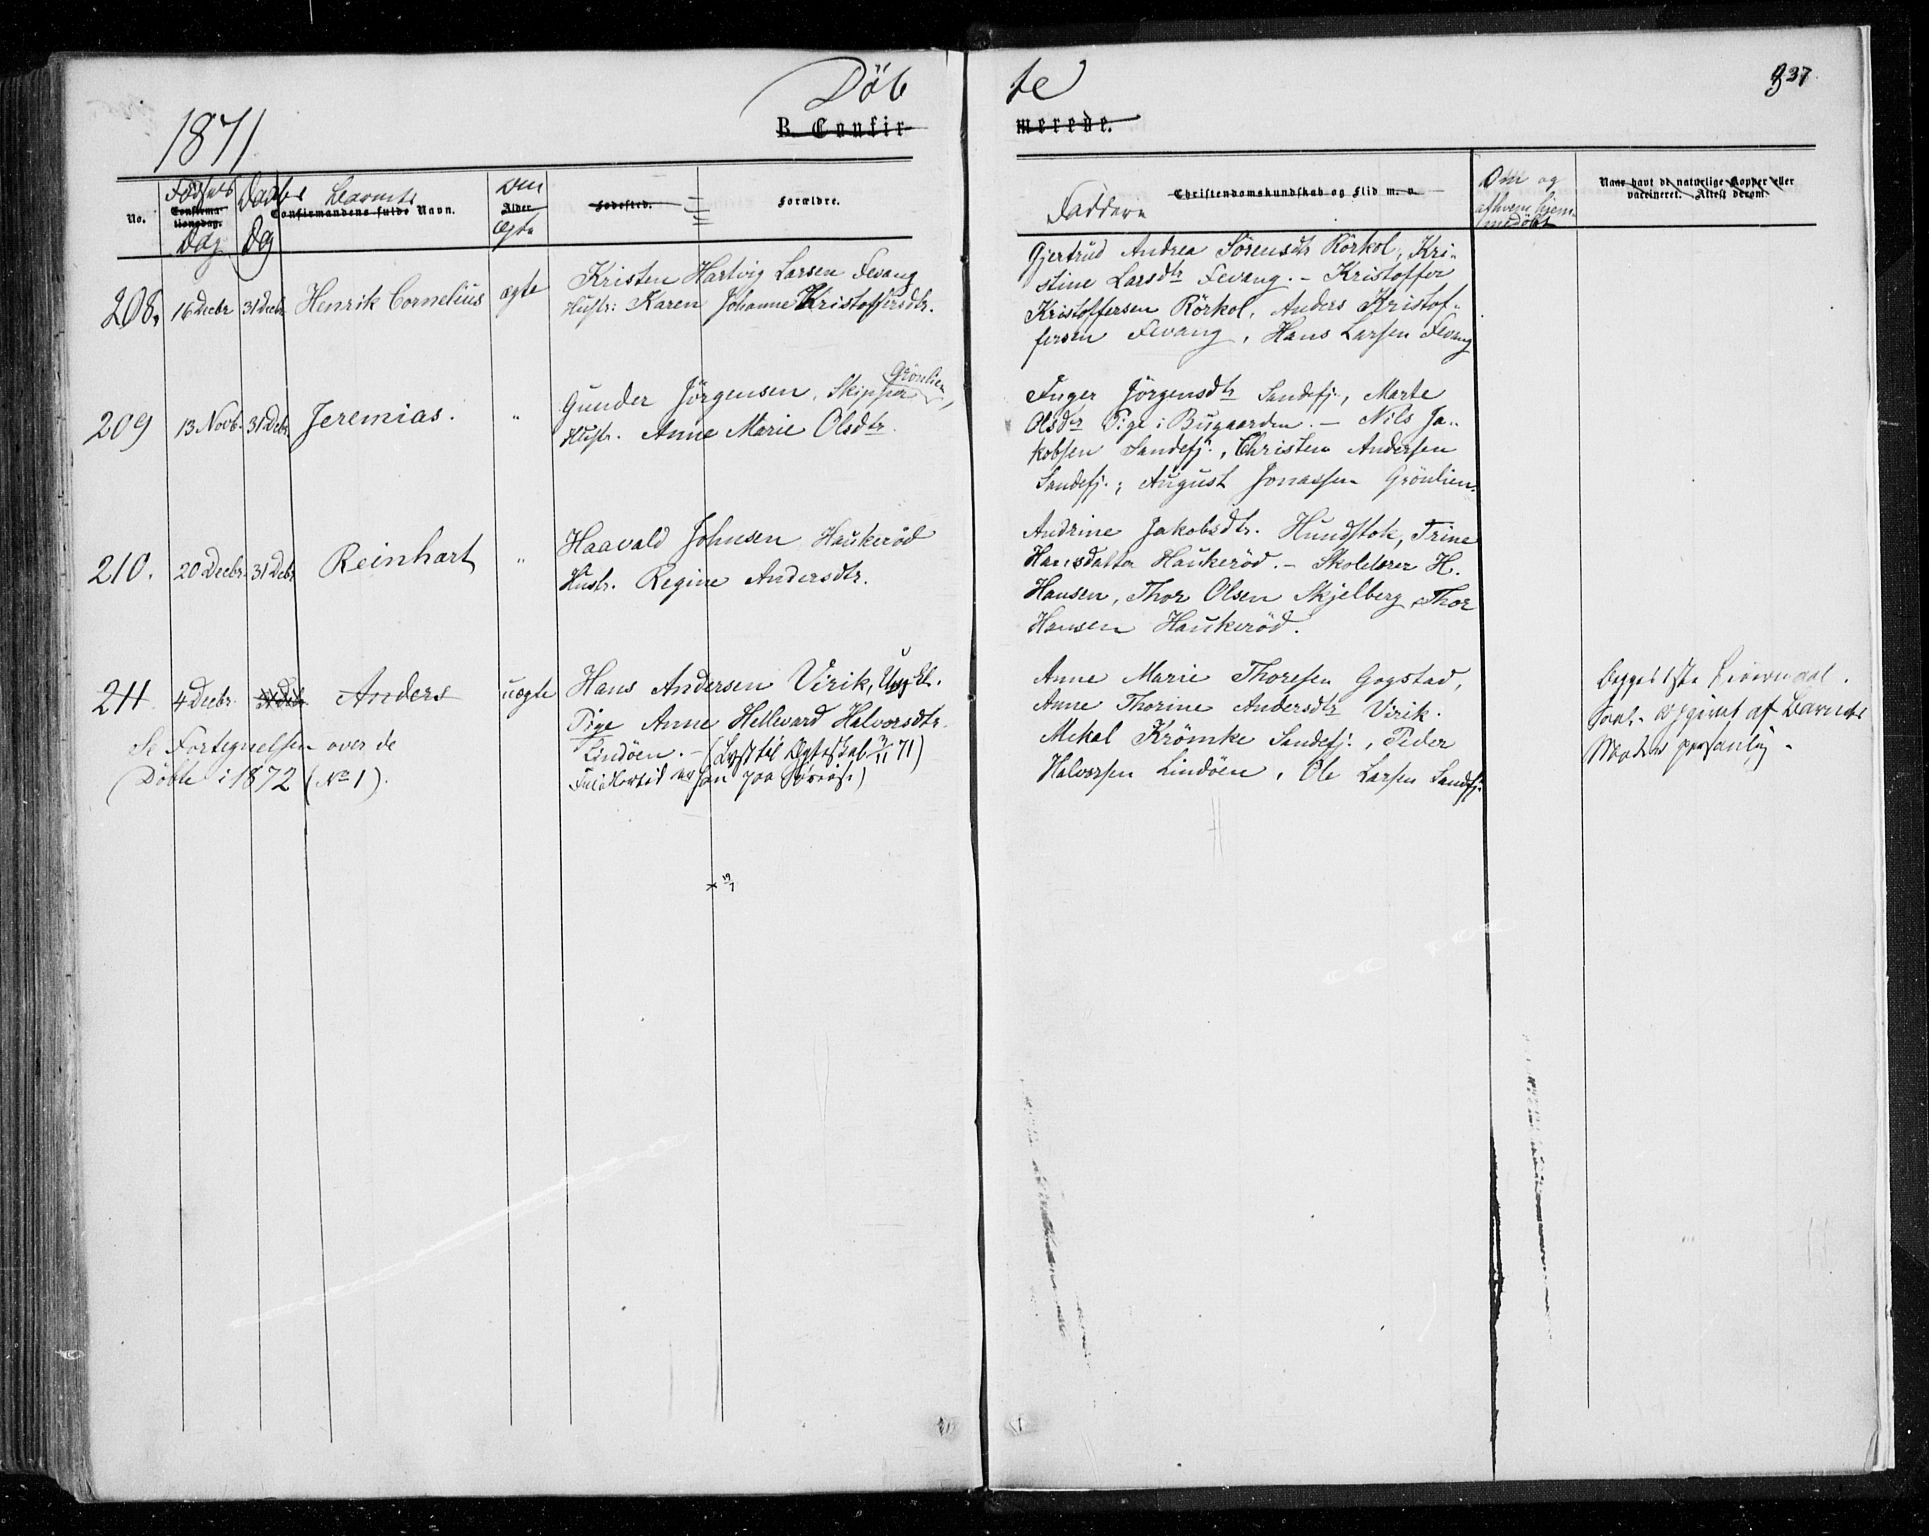 1871
Döb
te
337
B. Confir-
merede.
No.
Fødsels
Confirma-
tionsdag.
Dag
Daabs
Dag
Barnets
Confirmandens fulde Navn.
Om
Alder
Ægte
Fødested.
Forældre.
Faddere
Christendomskundskab og Flid m. v.
Om og
af hvem hjem-
medöbt
Naar havt de naturlige Kopper eller
vaccineret. Attest derom.
208. 16 Decbr 31 Decbr Henrik Cornelius ægte
Kristen Hartvig Larsen Fevang
Hustr: Karen Johanne Kristoffersdtr.
Gjertrud Andrea Sörensdtr Rörkol, Kri-
stine Larsdtr Fevang. - Kristoffer
Kristoffersen Rörkol, Anders Kristof-
fersen Fevang, Hans Larsen Fevang
209 13 Novb. 31 Debr Jeremias. "
Gunder Jörgensen, Skipper Grönlien,
Hustr. Anne Marie Olsdtr.
Inger Jörgensdtr Sandefj., Marte
Olsdtr Pige i Bugaarden. - Nils Ja-
kobsen Sandefj., Christen Andersen
Sandefj.; August Jonassen Grönlien.
210. 20 Decbr. 31 Debr Reinhart "
Haavald Johnsen Haukeröd
Hustr. Regine Andersdtr.
Andrine Jakobsdtr. Hundstok, Trine
Hansdatter Haukeröd. - Skolelærer H.
Hansen, Thor Olsen Skjelberg, Thor
Hansen Haukeröd.
211 4 Decbr. 31 Debr Anders uægte
Hans Andersen Virik, Ungkl.
Pige Anne Hellevard Halvorsdtr.
Lindöen. - (Lyst til Ægteskab 71)
Se Fortegnelsen over de
Döbte i 1872 (No 1).
Anne Marie Thoresen Gogstad,
Anne Thorine Andersdtr Virik.
Mekal Krömke Sandefj., Peder
Halvorsen Lindöen, Ole Larsen Sandefj.
Begges 1ste Leiermaal.
opgivet af Barnets
Moder personlig.